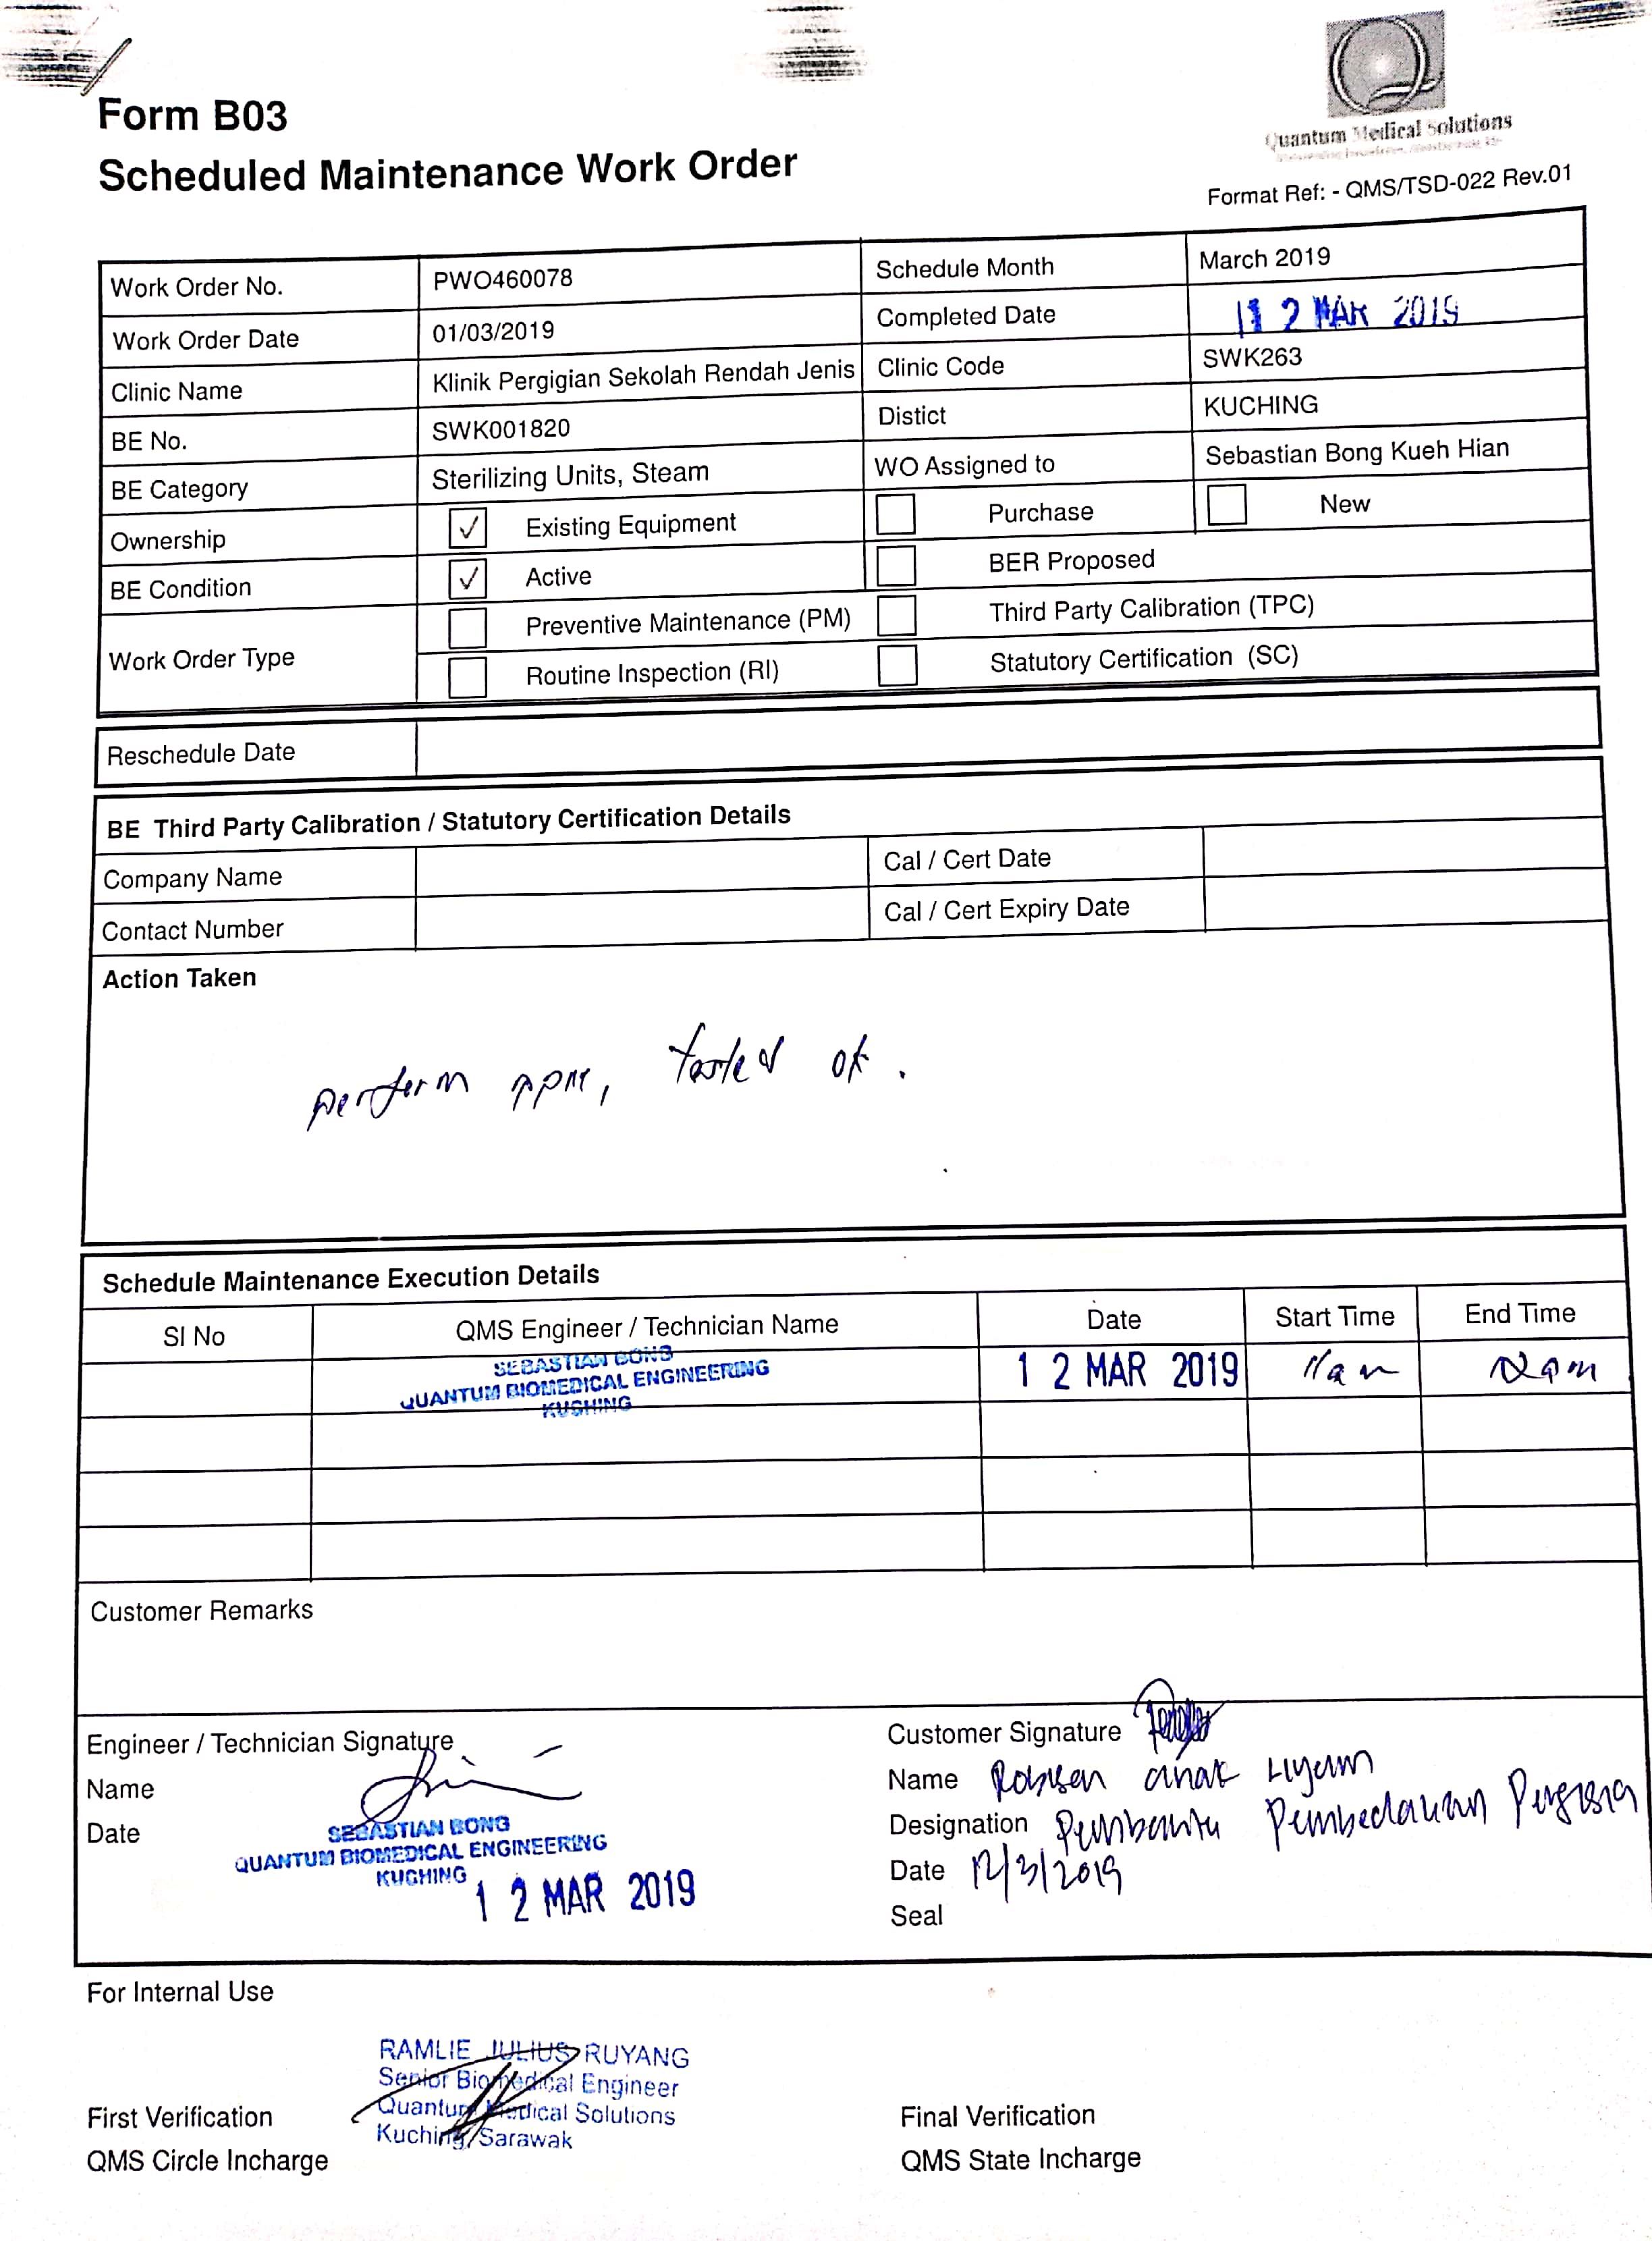 Quantum Medical Solutions
Form B03
Scheduled Maintenance Work Order
Format Ref: - QMS/TSD-022 Rev.01
Work Order No. PWO460078 Schedule Month March 2019
Work Order Date 01/03/2019 Completed Date 12 MAR 2019
Clinic Name Klinik Pergigian Sekolah Rendah Jenis Clinic Code SWK263
BE No. SWK001820 Distict KUCHING
BE Category Sterilizing Units, Steam WO Assigned to Sebastian Bong Kueh Hian
Ownership ✓ Existing Equipment Purchase New
BE Condition ✓ Active BER Proposed
Work Order Type Preventive Maintenance (PM) Third Party Calibration (TPC)
Routine Inspection (RI) Statutory Certification (SC)
Reschedule Date
BE Third Party Calibration / Statutory Certification Details
Company Name Cal / Cert Date
Contact Number Cal / Cert Expiry Date
Action Taken
perform ppm, tested ok.
Schedule Maintenance Execution Details
SI No QMS Engineer / Technician Name Date Start Time End Time
SEBASTIAN BONG
QUANTUM BIOMEDICAL ENGINEERING 12 MAR 2019 11am
KUCHING
Customer Remarks
Engineer / Technician Signature
Name
Date
SEBASTIAN BONG
QUANTUM BIOMEDICAL ENGINEERING
KUCHING
12 MAR 2019
Customer Signature
Name anak
Designation Pembantu Pembedahan Pergigian
Date 12/3/2019
Seal
For Internal Use
RAMLIE JULIUS RUYANG
Senior Biomedical Engineer
Quantum Medical Solutions
Kuching, Sarawak
First Verification
QMS Circle Incharge
Final Verification
QMS State Incharge